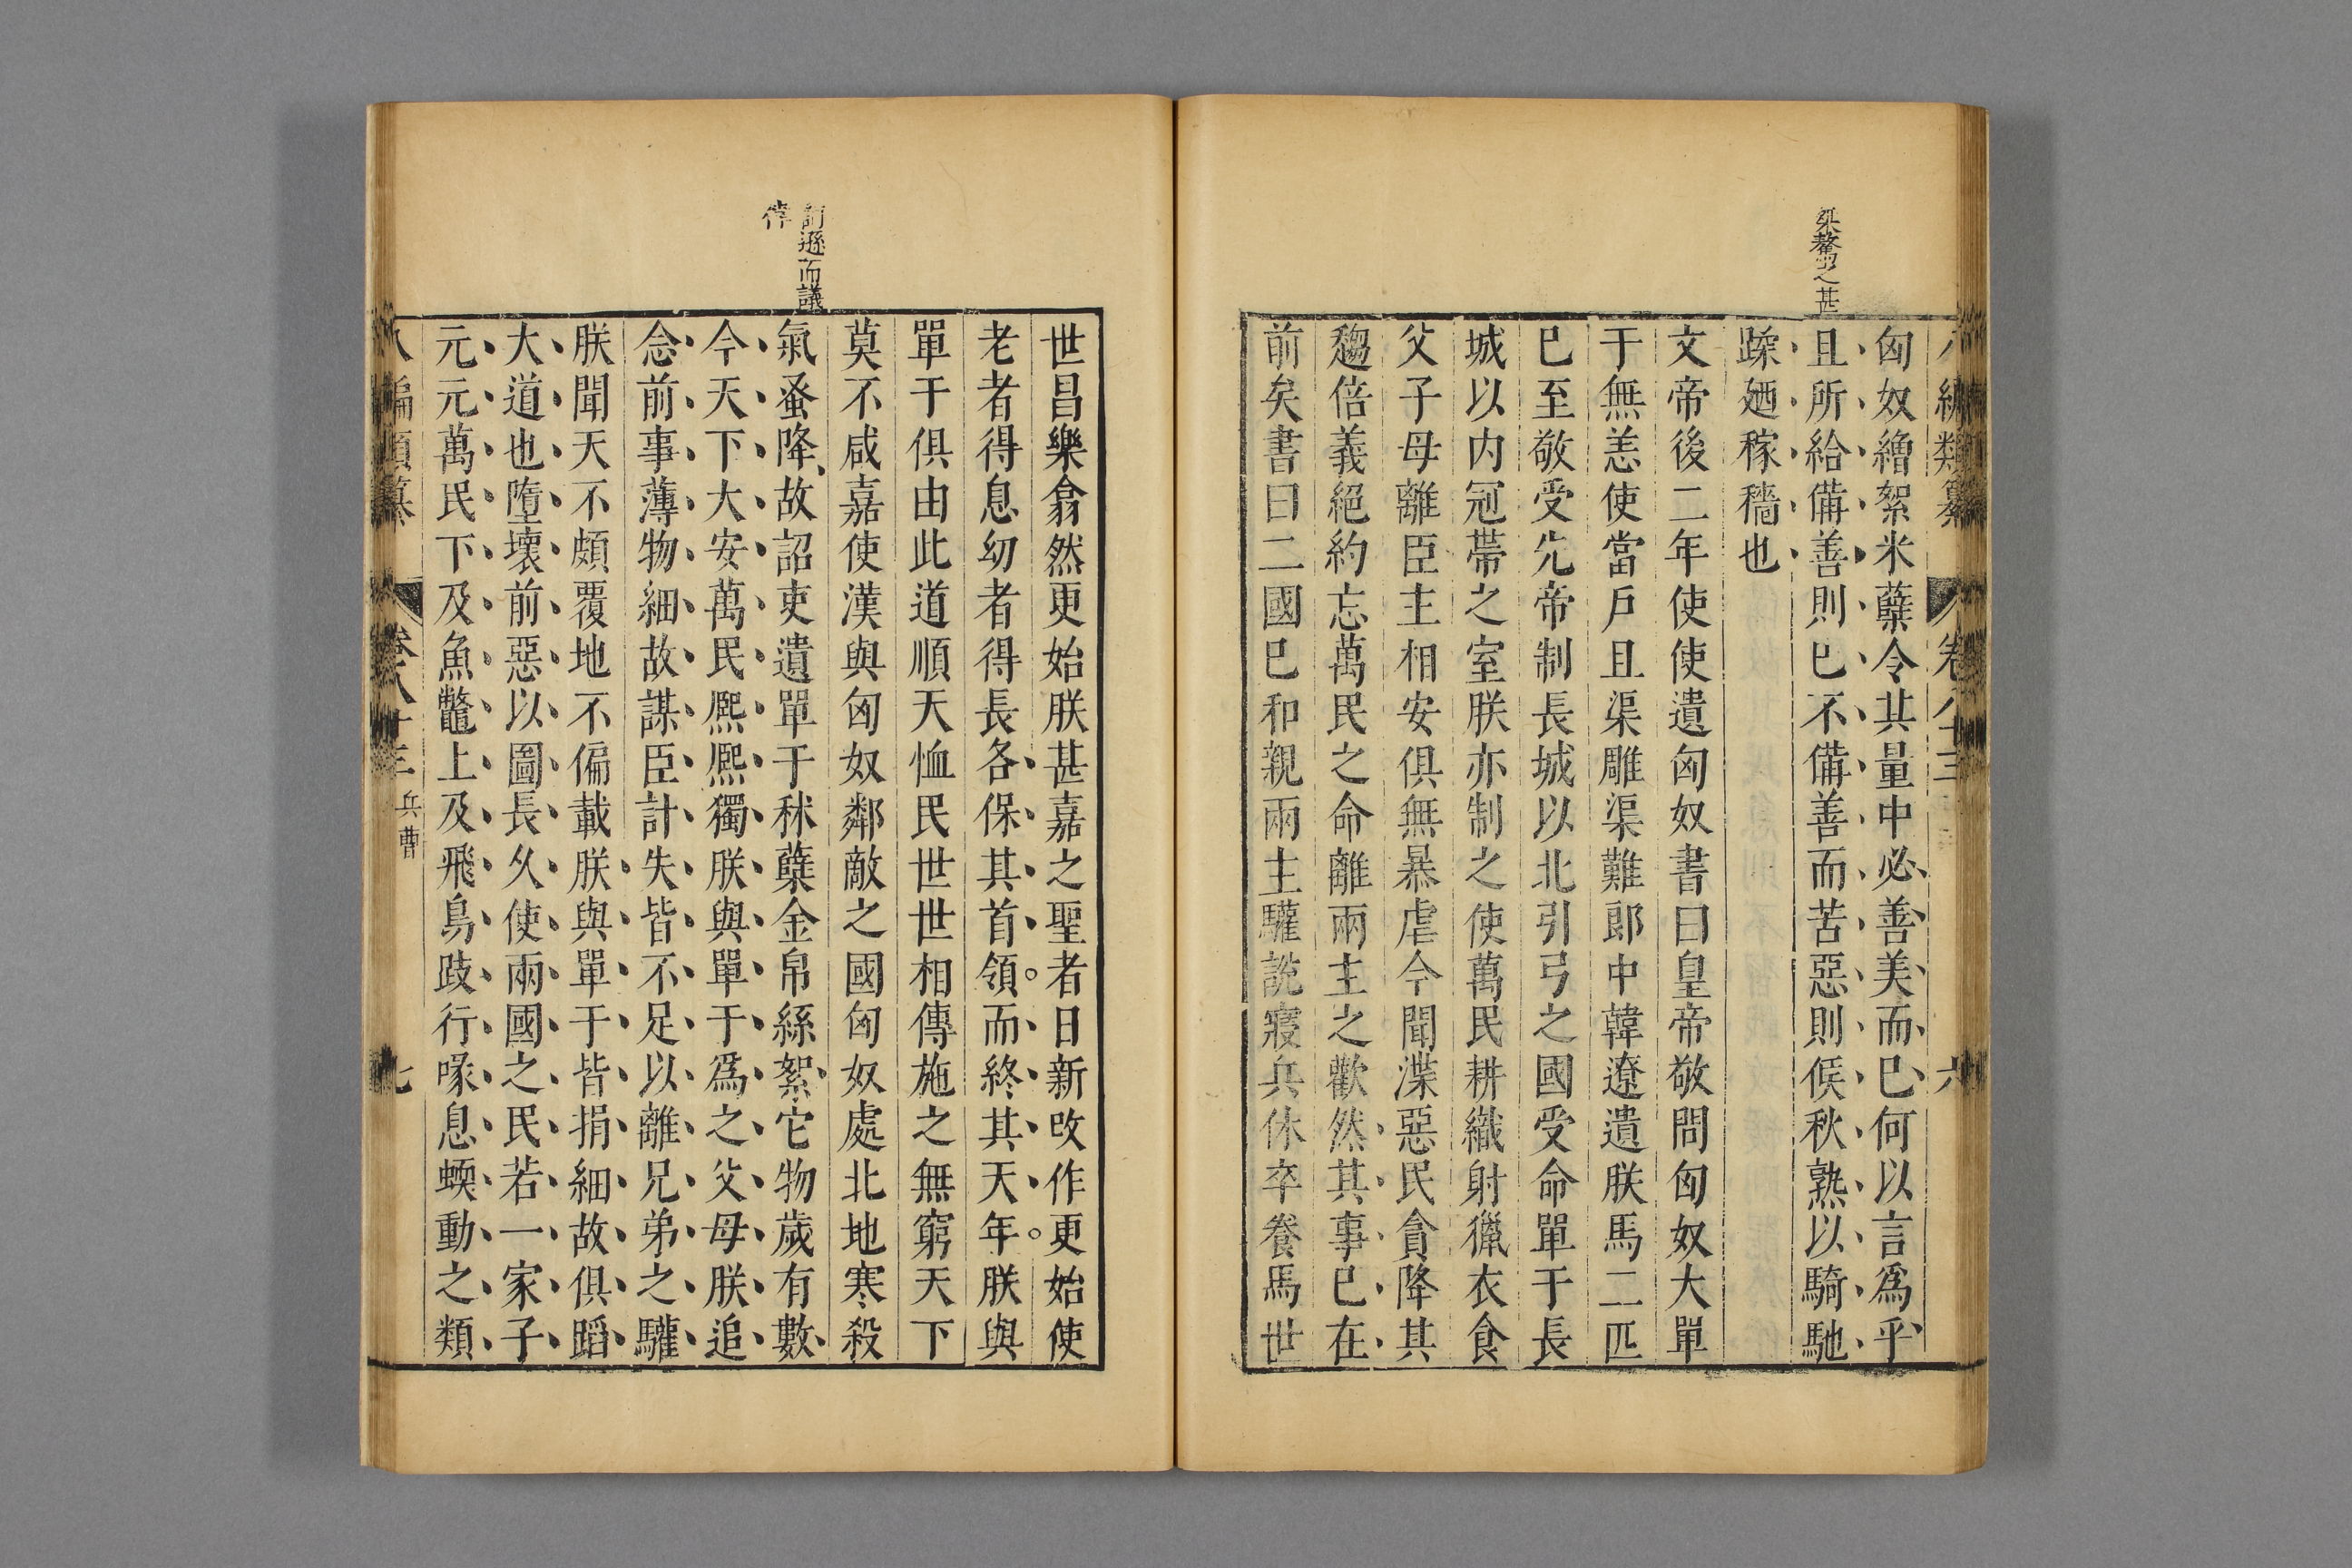 八編類纂 卷八十三 六
桀驁之甚
匈奴繒絮米蘖令其量中必善美而已何以言爲乎
且所給備善則已不備善而苦惡則候秋熟以騎馳
蹂廼稼穡也
文帝後二年使使遺匈奴書曰皇帝敬問匈奴大單
于無恙使當戶且渠雕渠難郎中韓遼遺朕馬二匹
已至敬受先帝制長城以北引弓之國受命單于長
城以內冠帶之室朕亦制之使萬民耕織射獵衣食
父子母離臣主相安俱無暴虐今聞渫惡民貪降其
趨倍義絕約忘萬民之命離兩主之歡然其事已在
前矣書曰二國已和親兩主驩說寢兵休卒養馬世
世昌樂翕然更始朕甚嘉之聖者日新改作更始使
老者得息幼者得長各保其首領而終其天年朕與
單于俱由此道順天恤民世世相傳施之無窮天下
莫不咸嘉使漢與匈奴鄰敵之國匈奴處北地寒殺
詞遜而議
偉
氣蚤降故詔吏遺單于秫蘖金帛絲絮它物歲有數
今天下大安萬民熈熈獨朕與單于爲之父母朕追
念前事薄物細故謀臣計失皆不足以離兄弟之驩
朕聞天不頗覆地不偏載朕與單于皆捐細故俱蹈
大道也墮壞前惡以圖長久使兩國之民若一家子
元元萬民下及魚鼈上及飛鳥跂行喙息蝡動之類
八編類纂 卷八十三 兵曹 七